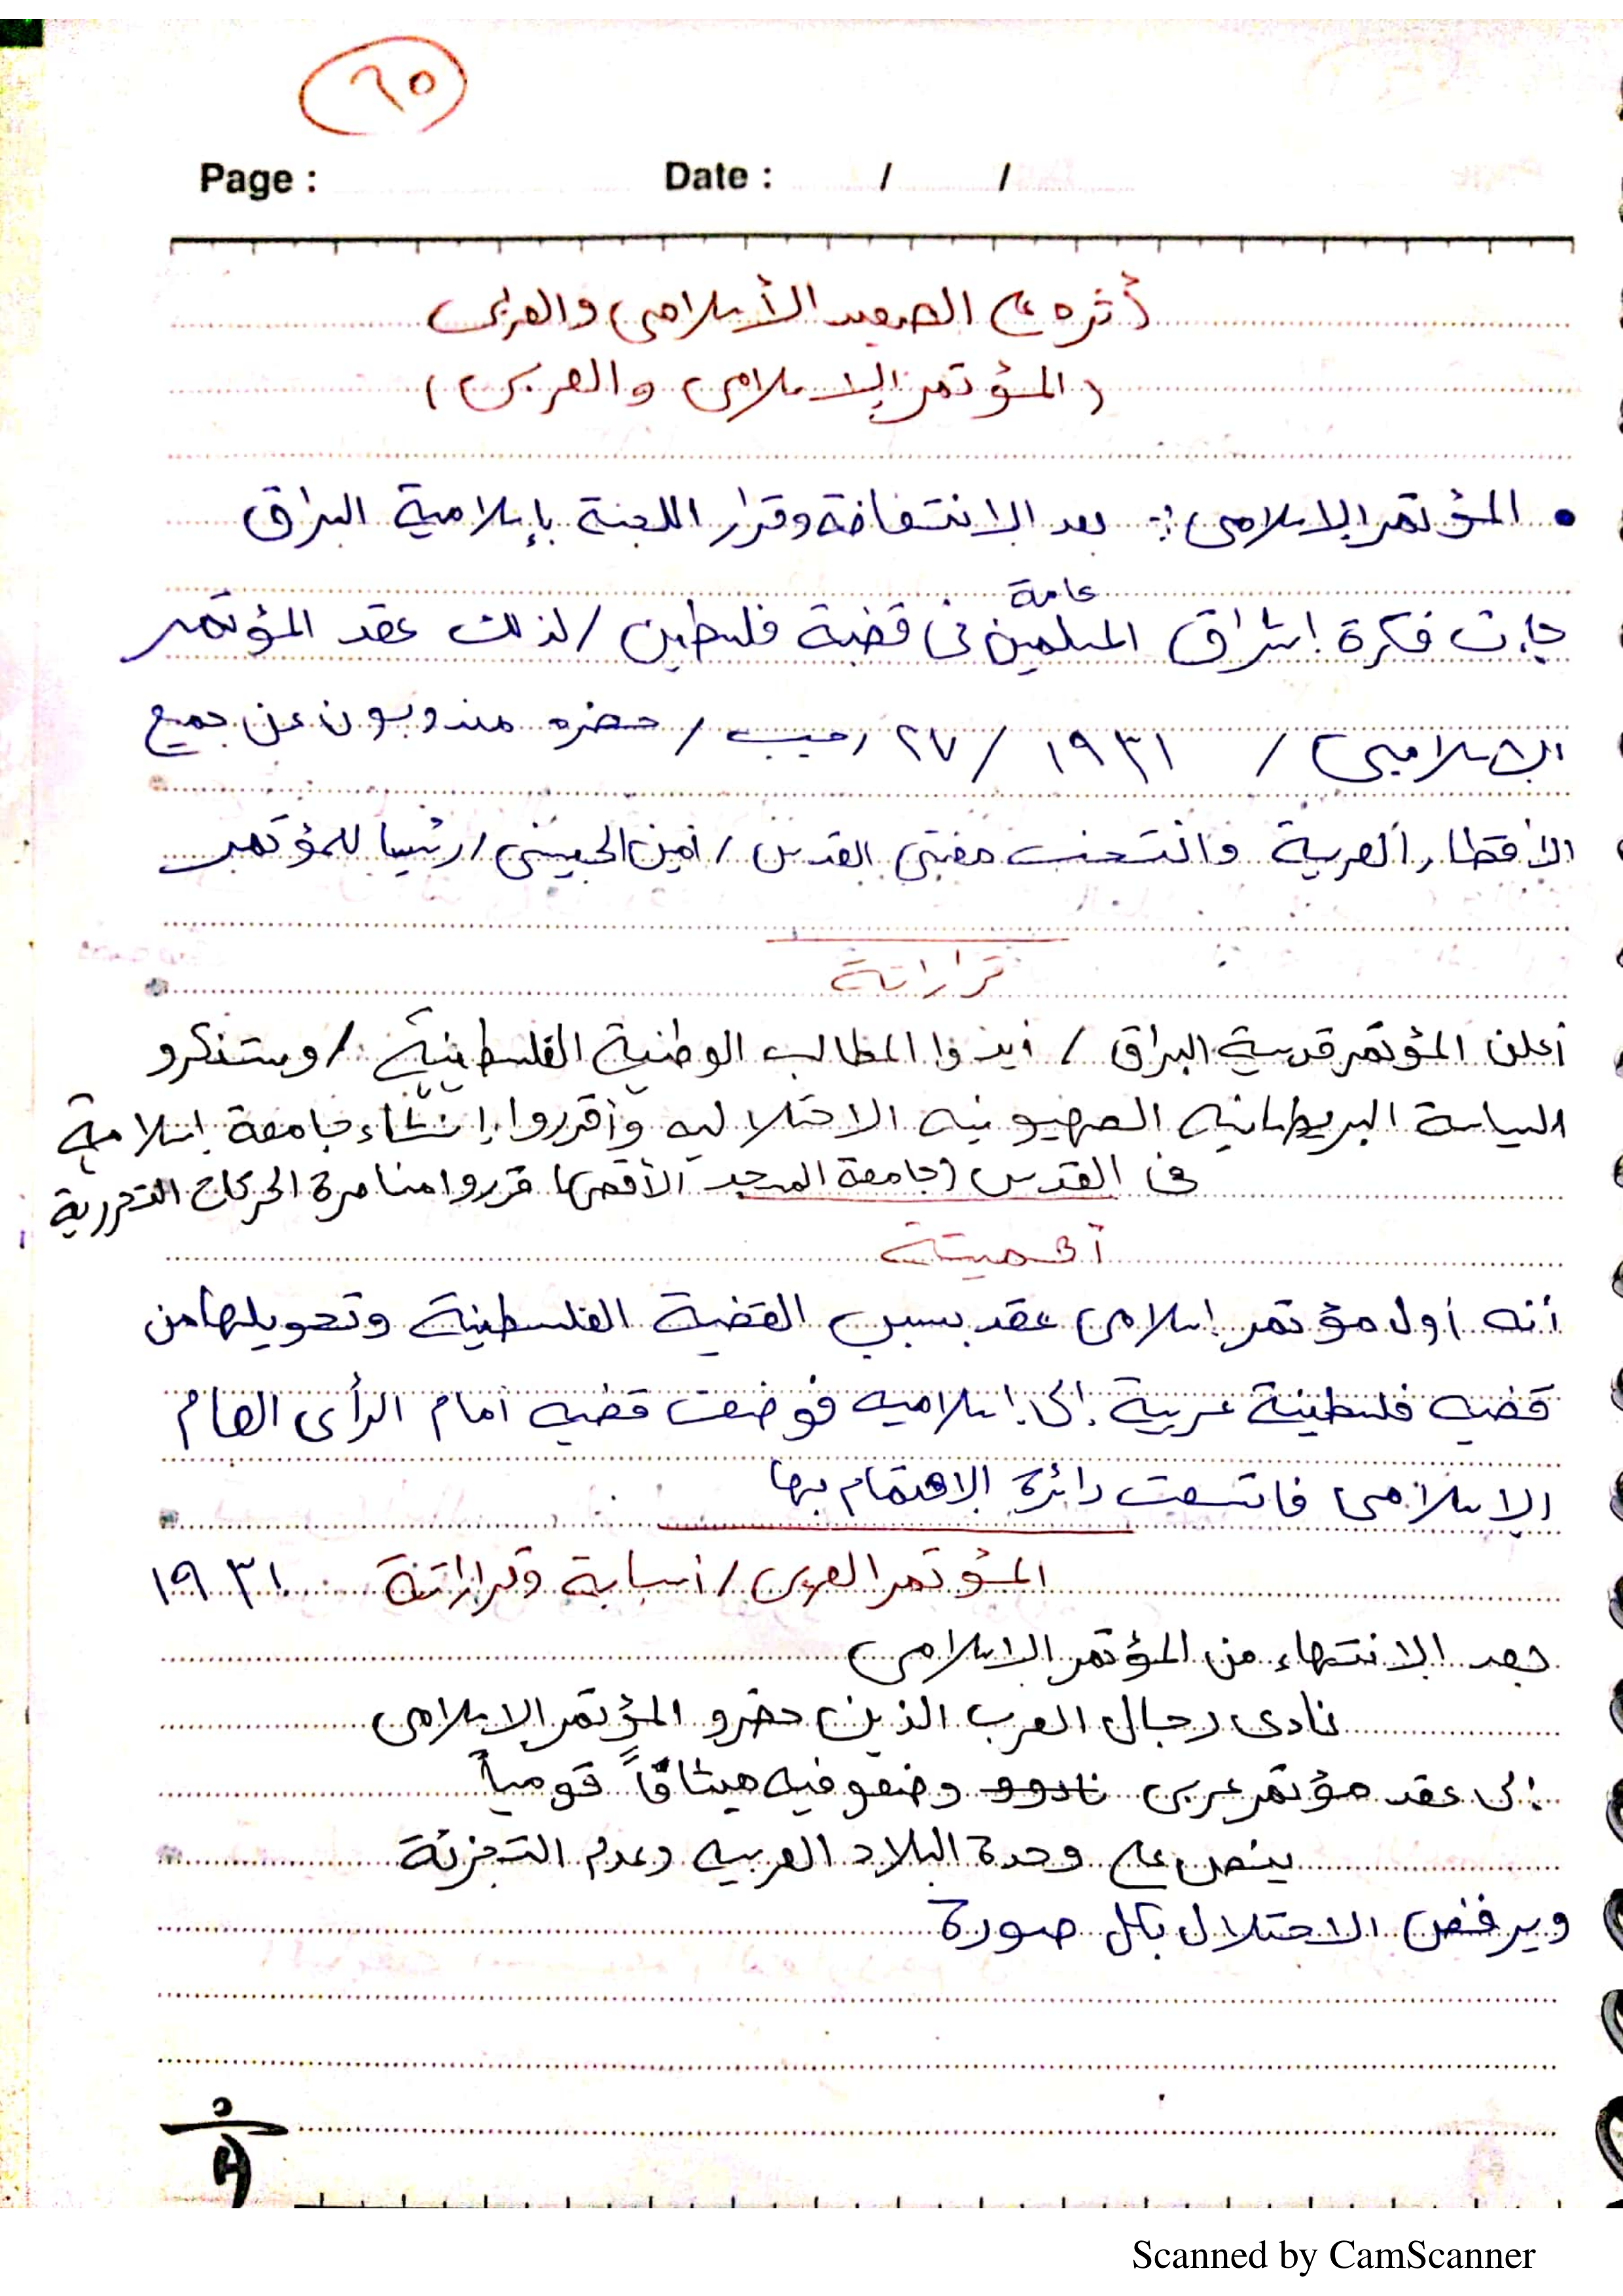 ٦٥
Page : Date : / /
أثره على الصعيد الأسلامي والعربي
(المؤتمر الاسلامي والعربي)
• المؤتمر الاسلامي :- بعد الانتفاضة وقرار اللجنة بإسلامية البراق
جاءت فكرة اشراق المسلمين عامة في قضية فلسطين / لذلك عقد المؤتمر
الاسلامي / ١٩٣١ / ٢٧ رجب / حضره مندوبون عن جميع
الأقطار العربية وانتخب مفتي القدس / أمين الحسيني / رئيسا للمؤتمر
قراراتة
أعلن المؤتمر قدسية البراق / أيدوا المطالب الوطنية الفلسطينية / وستنكرو
السياسة البريطانيه الصهيونيه الاحتلاليه وأقرروا إنشاء جامعة إسلامية
في القدس (جامعة المسجد الأقصى) قرروا مناصرة الحركات التحررية
أهميتة
أنه أول مؤتمر إسلامي عقد بسبب القضية الفلسطينية وتحويلها من
قضيه فلسطينة عربية إلى إسلاميه فوضعت قضيه أمام الرأي العام
الإسلامي فاتسعت دائرة الاهتمام بها
المؤتمر العربي / أسبابة وقراراتة ١٩٣١
بعد الانتهاء من المؤتمر الاسلامي
نادى رجال العرب الذين حضرو المؤتمر الاسلامي
إلى عقد مؤتمر عربي نادوو وضعو فيه ميثاقاً قومياً
ينص على وحدة البلاد العربيه وعدم التجزئة
ويرفض الاحتلال بكل صورة
Scanned by CamScanner